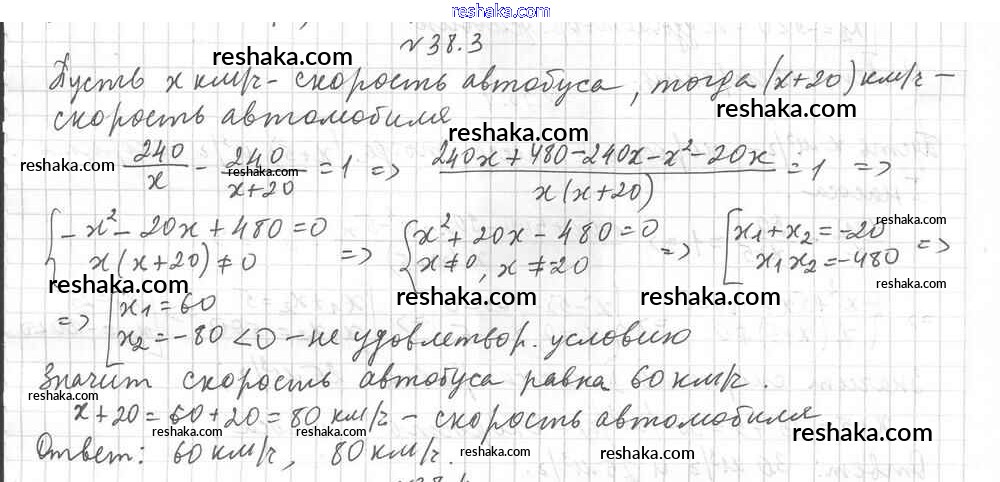 reshaka.com
№38.3
reshaka.com
Пусть x км/ч - скорость автобуса, тогда (x+20) км/ч -
reshaka.com
скорость автомобиля
reshaka.com
reshaka.com 240/x - 240/(x+20) = 1 => (240x+480-240x-x²-20x)/(x(x+20)) = 1 =>
reshaka.com
{ -x²-20x+480=0 x(x+20)≠0 => { x²+20x-480=0 x≠0, x≠-20 => [ x₁+x₂=-20 x₁x₂=-480 =>
reshaka.com
reshaka.com reshaka.com reshaka.com
=> [ x₁=60
x₂=-80 <0 - не удовлетвор. условию
reshaka.com
Значит скорость автобуса равна 60 км/ч.
reshaka.com
x+20=60+20=80 км/ч - скорость автомобиля
reshaka.com reshaka.com
Ответ: 60 км/ч, 80 км/ч.
reshaka.com reshaka.com